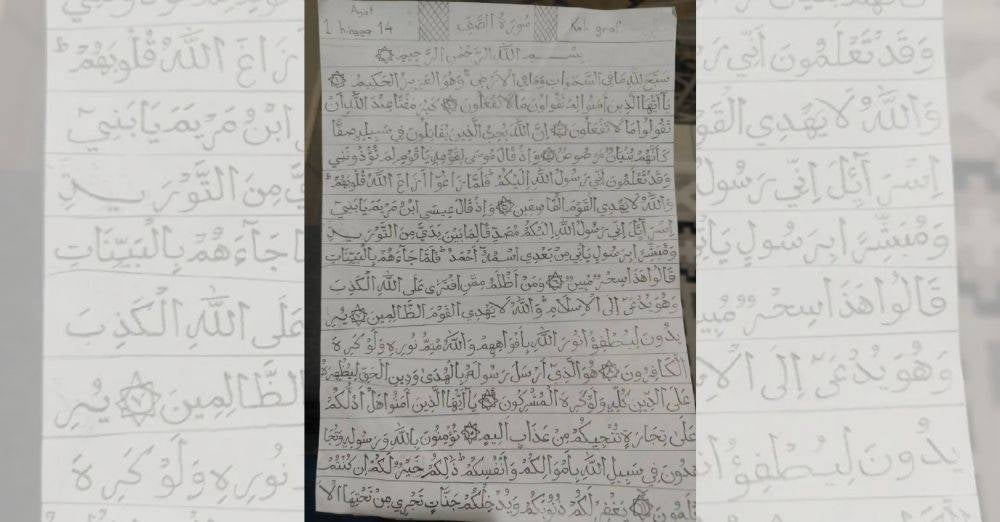 Ayat
1 hingga 14
سُورَةُ الصَّفِّ
Kaligraf
بِسْمِ اللَّهِ الرَّحْمَنِ الرَّحِيمِ
سَبَّحَ لِلَّهِ مَا فِي السَّمَوَاتِ وَمَا فِي الْأَرْضِ وَهُوَ الْعَزِيزُ الْحَكِيمُ
يَا أَيُّهَا الَّذِينَ آمَنُوا لِمَ تَقُولُونَ مَا لَا تَفْعَلُونَ كَبُرَ مَقْتًا عِنْدَ اللَّهِ أَنْ
تَقُولُوا مَا لَا تَفْعَلُونَ إِنَّ اللَّهَ يُحِبُّ الَّذِينَ يُقَاتِلُونَ فِي سَبِيلِهِ صَفًّا
كَأَنَّهُمْ بُنْيَانٌ مَرْصُوصٌ وَإِذْ قَالَ مُوسَى لِقَوْمِهِ يَا قَوْمِ لِمَ تُؤْذُونَنِي
وَقَدْ تَعْلَمُونَ أَنِّي رَسُولُ اللَّهِ إِلَيْكُمْ فَلَمَّا زَاغُوا أَزَاغَ اللَّهُ قُلُوبَهُمْ
وَاللَّهُ لَا يَهْدِي الْقَوْمَ الْفَاسِقِينَ وَإِذْ قَالَ عِيسَى ابْنُ مَرْيَمَ يَا بَنِي
إِسْرَآئِلَ إِنِّي رَسُولُ اللَّهِ إِلَيْكُمْ مُصَدِّقًا لِمَا بَيْنَ يَدَيَّ مِنَ التَّوْرَيةِ
وَمُبَشِّرًا بِرَسُولٍ يَأْتِي مِنْ بَعْدِي اسْمُهُ أَحْمَدُ فَلَمَّا جَآءَهُمْ بِالْبَيِّنَاتِ
قَالُوا هَذَا سِحْرٌ مُبِينٌ وَمَنْ أَظْلَمُ مِمَّنِ افْتَرَى عَلَى اللَّهِ الْكَذِبَ
وَهُوَ يُدْعَى إِلَى الْإِسْلَامِ وَاللَّهُ لَا يَهْدِي الْقَوْمَ الظَّالِمِينَ يُرِ
يدُونَ لِيُطْفِؤُا نُورَ اللَّهِ بِأَفْوَاهِهِمْ وَاللَّهُ مُتِمُّ نُورِهِ وَلَوْ كَرِهَ
الْكَافِرُونَ هُوَ الَّذِي أَرْسَلَ رَسُولَهُ بِالْهُدَى وَدِينِ الْحَقِّ لِيُظْهِرَهُ
عَلَى الدِّينِ كُلِّهِ وَلَوْ كَرِهَ الْمُشْرِكُونَ يَا أَيُّهَا الَّذِينَ آمَنُوا هَلْ أَدُلُّكُمْ
عَلَى تِجَارَةٍ تُنْجِيكُمْ مِنْ عَذَابٍ أَلِيمٍ تُؤْمِنُونَ بِاللَّهِ وَرَسُولِهِ وَتُجَا
هِدُونَ فِي سَبِيلِ اللَّهِ بِأَمْوَالِكُمْ وَأَنْفُسِكُمْ ذَلِكُمْ خَيْرٌ لَكُمْ إِنْ كُنْتُمْ
تَعْلَمُونَ يَغْفِرْ لَكُمْ ذُنُوبَكُمْ وَيُدْخِلْكُمْ جَنَّاتٍ تَجْرِي مِنْ تَحْتِهَا الْأَ